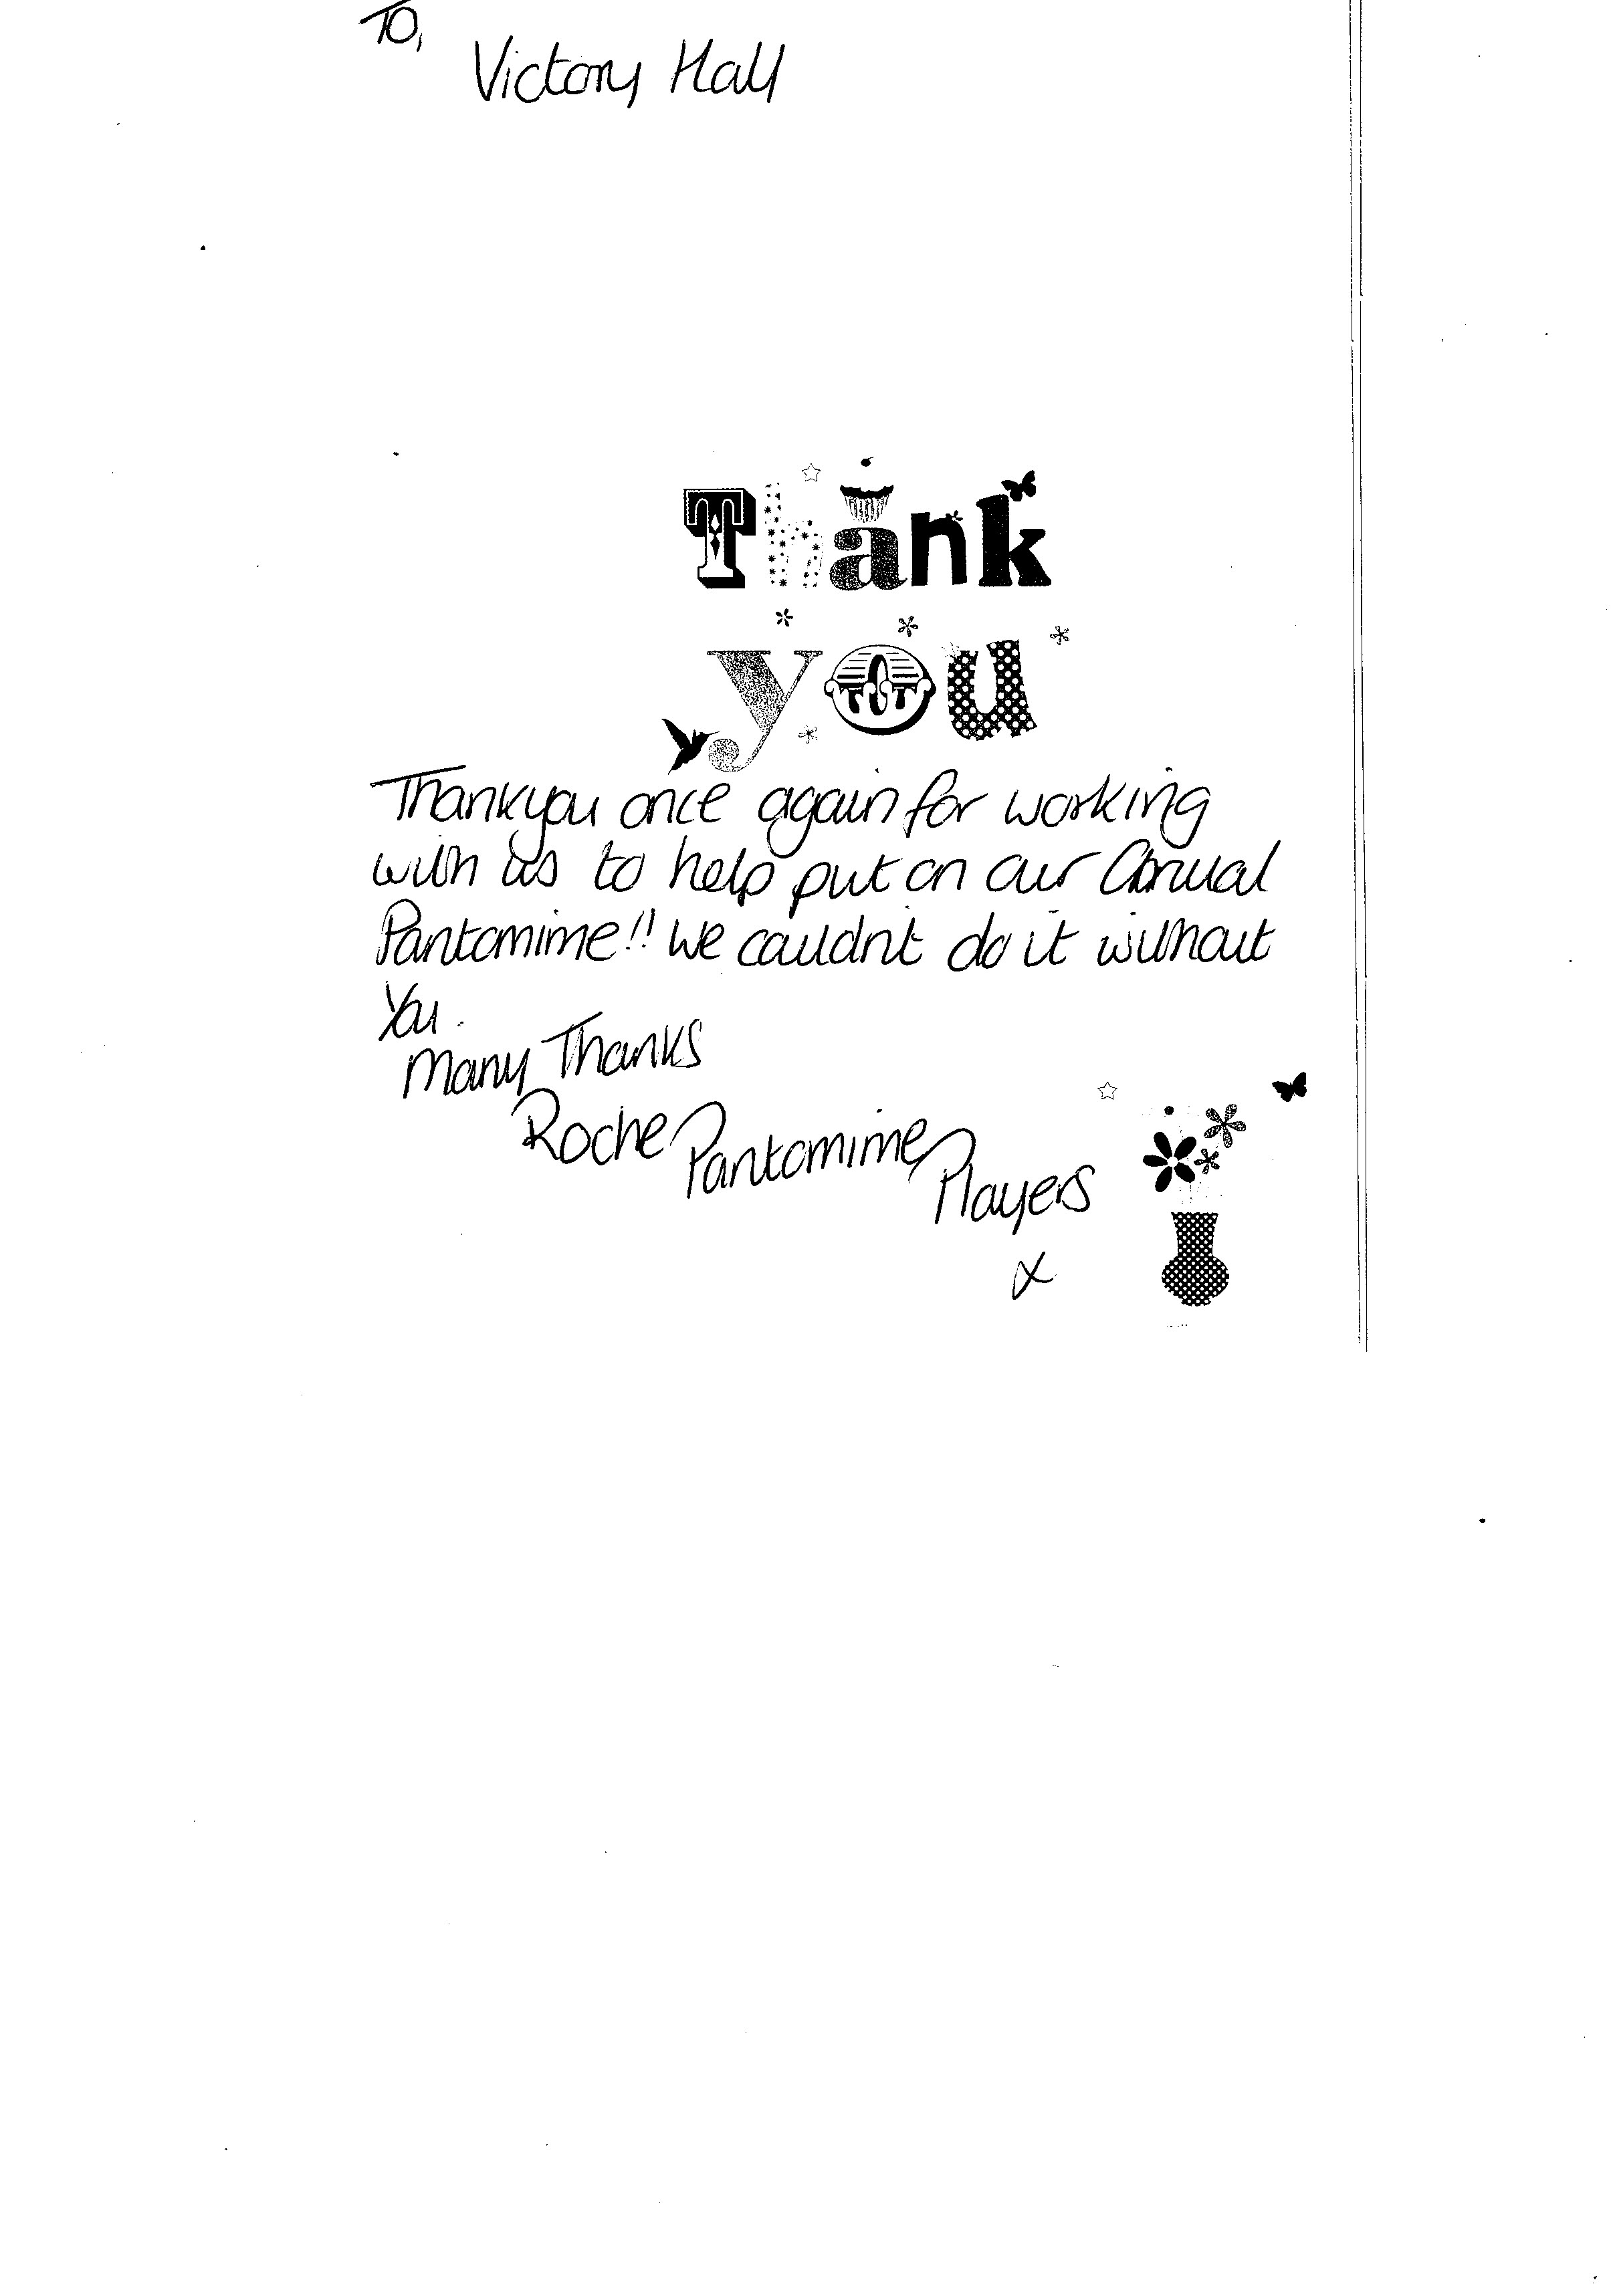 To,
Victory Hall
Thank
you
Thankyou once again for working
with us to help put on our Annual
Pantomime!! We couldn't do it without
You.
Many Thanks
Roche Pantomime Players
x